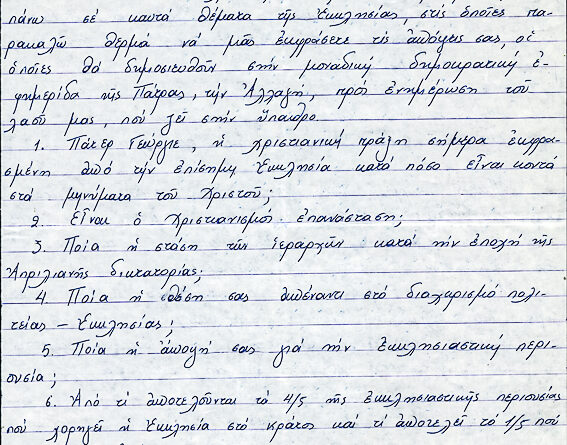 πάνω σέ καυτά θέματα τῆς Ἐκκλησίας, στίς ὁποῖες πα-
ρακαλῶ θερμά νά μᾶς ἐκφράσετε τίς ἀπόψεις σας, οἱ
ὁποῖες θά δημοσιευθοῦν στήν μοναδική δημοκρατική ἐ-
φημερίδα τῆς Πάτρας, τήν Ἀλλαγή, πρός ἐνημέρωση τοῦ
λαοῦ μας, πού ζεῖ στήν ὕπαιθρο.
1. Πάτερ Γεώργιε, ἡ χριστιανική πράξη σήμερα ἐκφρα-
σμένη ἀπό τήν ἐπίσημη Ἐκκλησία κατά πόσο εἶναι κοντά
στά μηνύματα τοῦ Χριστοῦ;
2. Εἶναι ὁ Χριστιανισμός ἐπανάσταση;
3. Ποία ἡ στάση τῶν ἱεραρχῶν κατά τήν ἐποχή τῆς
Ἀπριλιανῆς δικτατορίας;
4. Ποία ἡ θέση σας ἀπέναντι στό διαχωρισμό πολι-
τείας - Ἐκκλησίας;
5. Ποία ἡ ἄποψή σας γιά τήν ἐκκλησιαστική περι-
ουσία;
6. Ἀπό τί ἀποτελοῦνται τά 4/5 τῆς ἐκκλησιαστικῆς περιουσίας
πού χορηγεῖ ἡ Ἐκκλησία στό κράτος καί τί ἀποτελεῖ τό 1/5 πού